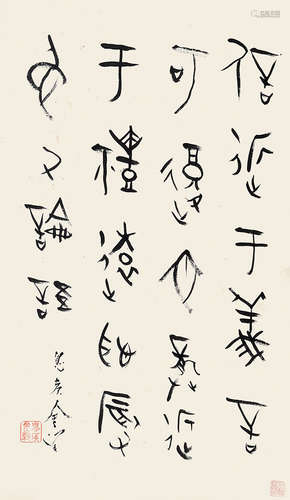 信近于義言
可復也恭近
于禮遠恥辱
也 論語